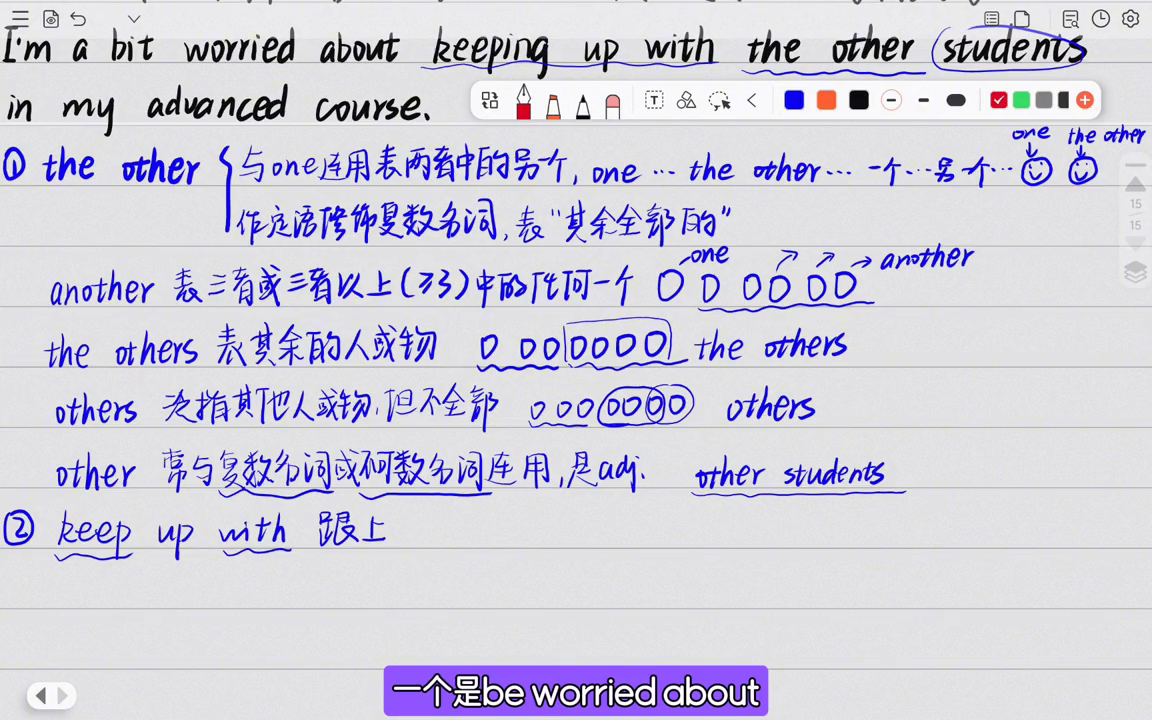 I'm a bit worried about keeping up with the other students
in my advanced course.
one the other
① the other 与one连用表两者中的另一个, one … the other … 一个…另一个…
作定语修饰复数名词, 表“其余全部的”
one another
another 表三者或三者以上(≥3)中的任何一个
the others 表其余的人或物 the others
others 泛指其他人或物, 但不全部 others
other 常与复数名词或不可数名词连用, 是adj. other students
② keep up with 跟上
15
15
一个是be worried about